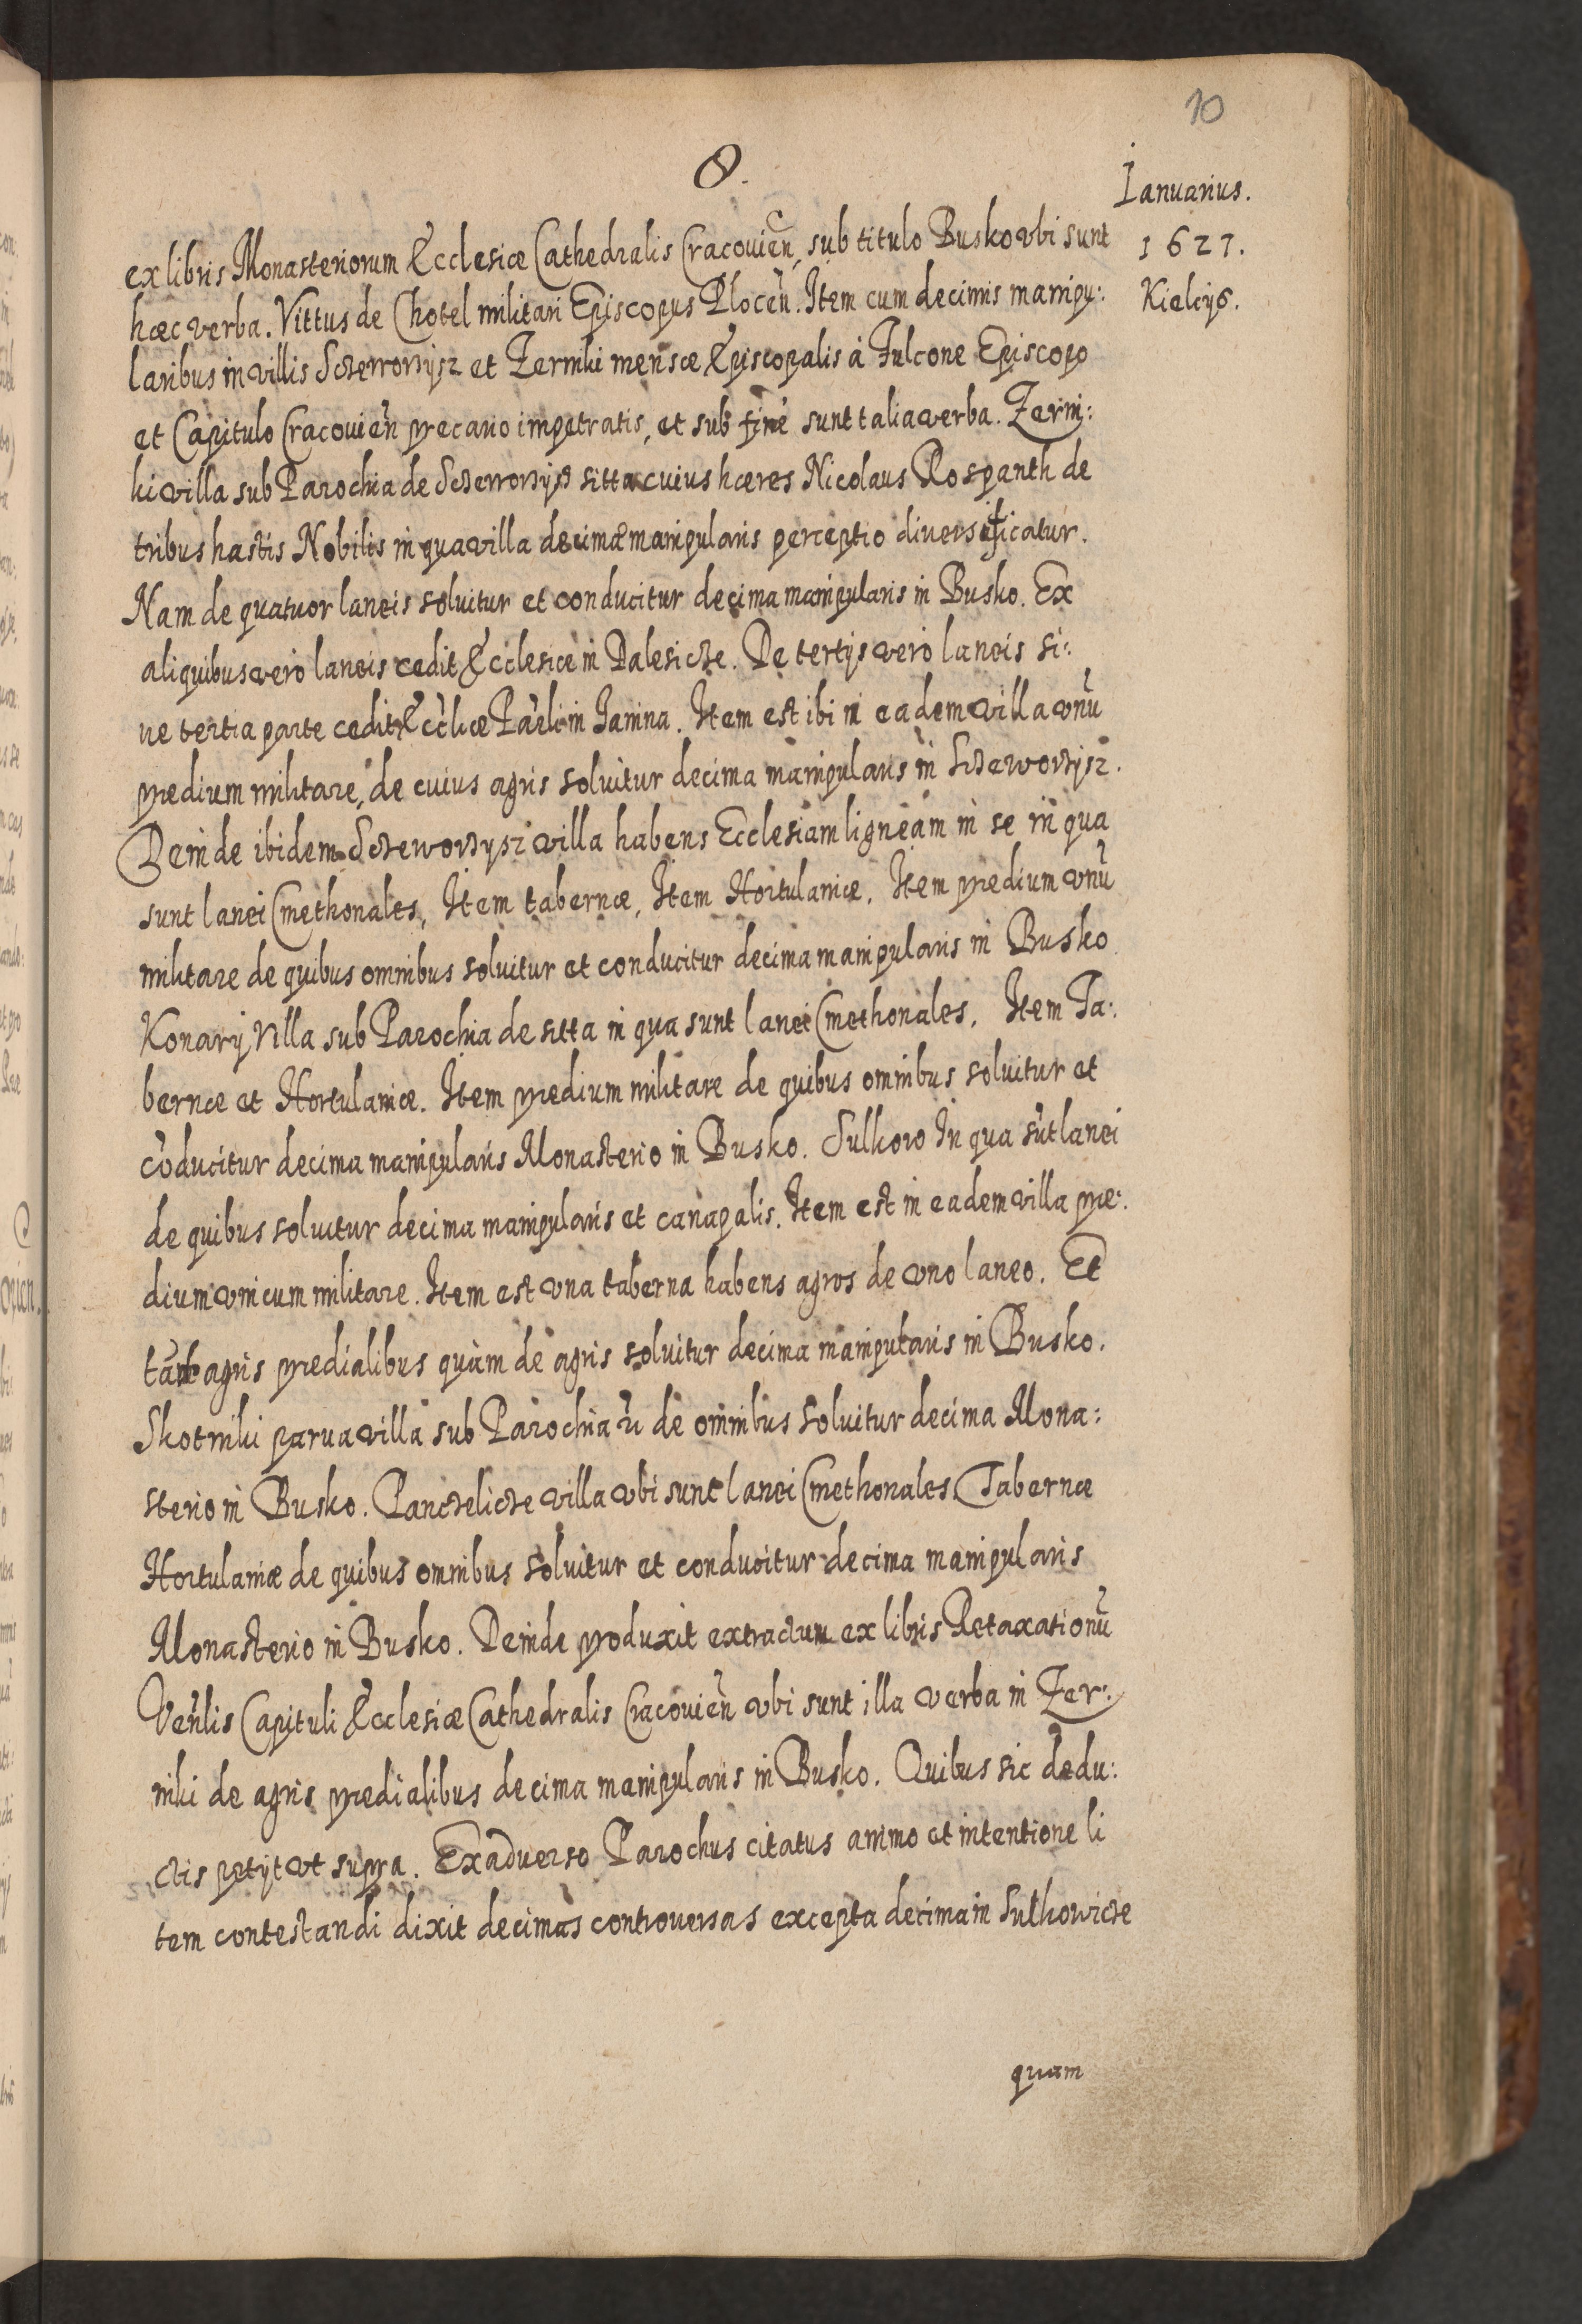 10
8.
Ianuarius.
1621.
Kielcys.
ex libris Monasteriorum Ecclesiæ Cathedralis Cracouień, sub titulo Busko vbi sunt
hæc verba. Vittus de Chotel militari Episcopus Plocen̄. Item cum decimis manipu:
laribus in villis et Zerniki mensæ Episcopalis à Fulcone Episcopo
et Capitulo Cracouień precario impetratis, et sub finē sunt talia verba. Zerni:
ki villa sub Parochia de sitta cuius hæres Nicolaus Rospanth de
tribus hastis Nobilis in qua villa decimæ manipularis perceptio diversificatur.
Nam de quatuor laneis soluitur et conducitur decima manipularis in Busko. Ex
aliquibus vero laneis cedit Ecclesiæ in Palesicze. De tertys vero laneis si:
ue tertia parte cedit Eccliæ in Janina. Item est ibi in eadem villa vnū
predium militare, de cuius agris soluitur decima manipularis in
Deinde ibidem villa habens Ecclesiam ligneam in se in qua
sunt lanei Cmethonales, Item tabernæ, Item Hortulaniæ. Item predium vnū
militare de quibus omnibus soluitur et conducitur decima manipularis in Busko
Konary Villa sub Parochia de sitta in qua sunt lanei Cmethonales. Item Ta:
bernæ et Hortulaniæ. Item predium militare de quibus omnibus soluitur et
cōducitur decima manipularis Monasterio in Busko. Sulkow In qua sūt lanei
de quibus soluitur decima manipularis et canapalis. Item est in eadem villa pre:
dium vnicum militare. Item est vna taberna habens agros de vno laneo. Et
agris predialibus quàm de agris soluitur decima manipularis in Busko.
Skotniki parua villa sub Parochia de omnibus soluitur decima Mona:
sterio in Busko. Panczelicze villa vbi sunt lanei Cmethonales Tabernæ
Hortulaniæ de quibus omnibus soluitur et conducitur decima manipularis
Monasterio in Busko. Deinde produxit extractum ex libris Retaxationū
Venlis Capituli Ecclesiæ Cathedralis Cracouień vbi sunt illa verba in Zer:
niki de agris predialibus decima manipularis in Busko. Quibus sic dedu:
ctis petijt vt supra. Ex aduerso Parochus citatus animo et intentione li
tem contestandi dixit decimas controuersas excepta decima in Sulkowicze
quam